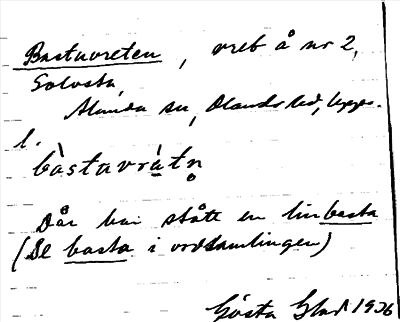 Bastuvreten, vret å nr 2,
Golvsta,
Alunda sn, Olands hd, Upps.
l.
bàstuvràtn̥
Där har stått en linbasta
(Se basta i ordsamlingen)
Gösta Glad 1936